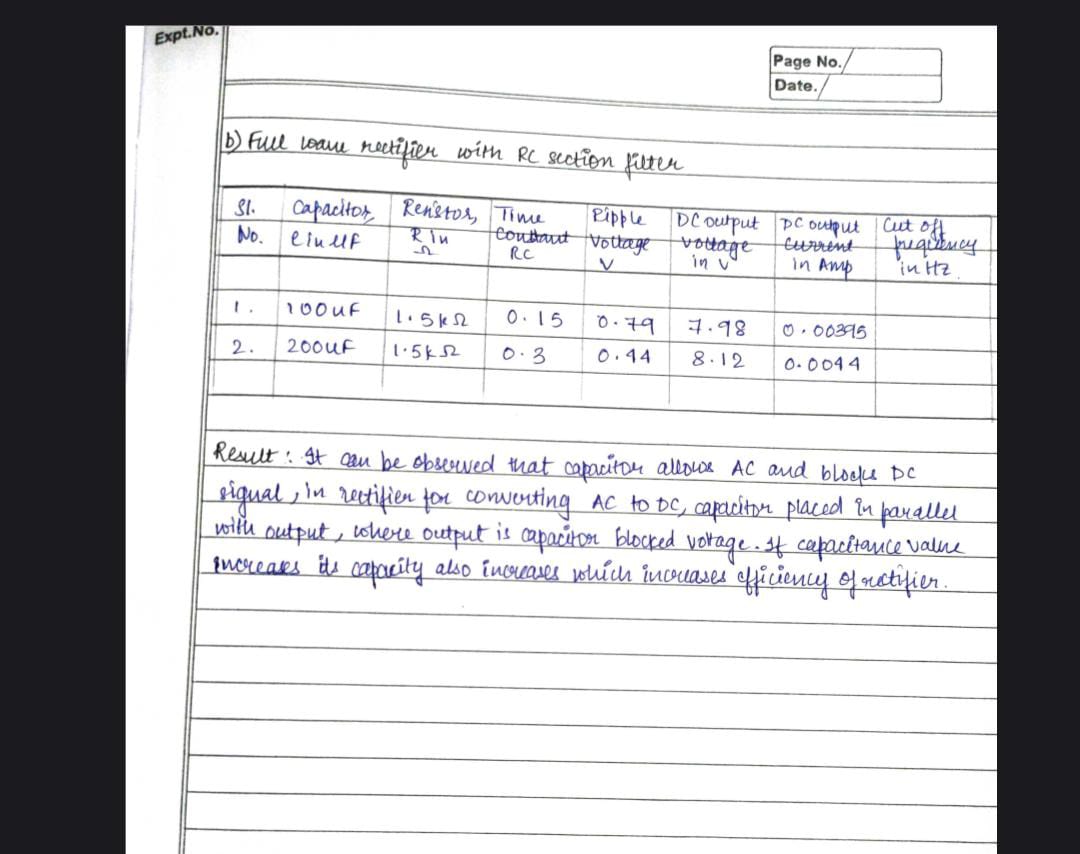 Expt.No.
Page No.
Date.
b) Full wave rectifier with RC section filter
Sl. No. | Capacitor, C in uF | Resistor, R in Ω | Time Constant RC | Ripple Voltage V | DC output voltage in V | DC output current in Amp | Cut off frequency in Hz
1. | 100uF | 1.5kΩ | 0.15 | 0.79 | 7.98 | 0.00395
2. | 200uF | 1.5kΩ | 0.3 | 0.44 | 8.12 | 0.0044
Result : It can be observed that capacitor allows AC and blocks DC
signal, in rectifier for converting AC to DC, capacitor placed in parallel
with output, where output is capacitor blocked votage. If capacitance value
increases its capacity also increases which increases efficiency of rectifier.